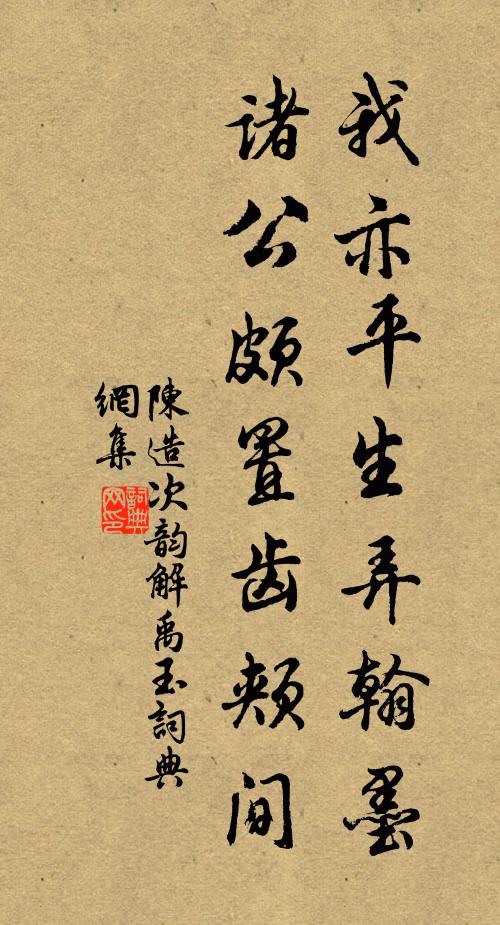 我亦平生弄翰墨
诸公颇置齿颊间
陳造次韵解禹玉詞典
網集
詞典網印